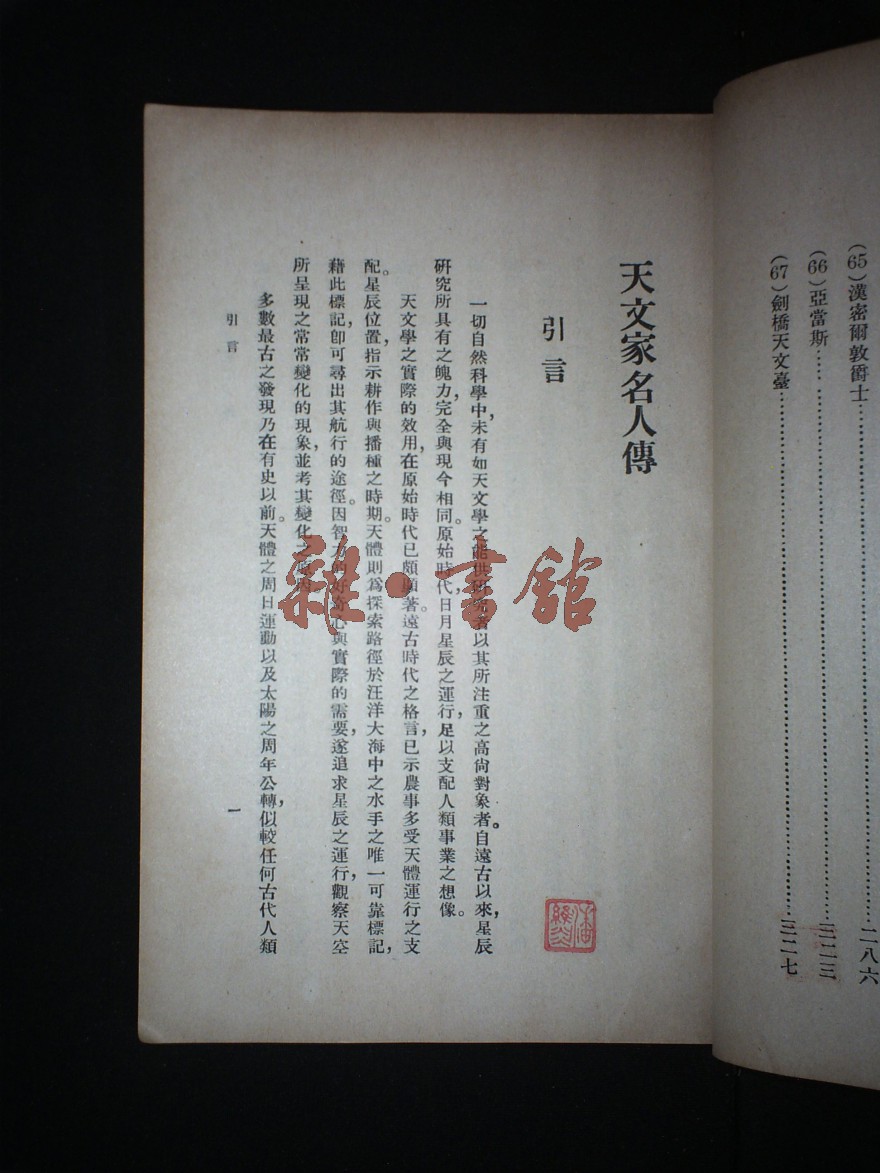 (65)漢密爾敦爵士……二八六
(66)亞當斯……三二三
(67)劍橋天文臺……三二七
天文家名人傳
引言
一切自然科學中,未有如天文學之能供研究者以其所注重之高尙對象者。自遠古以來,星辰
研究所具有之魄力,完全與現今相同。原始時代,日月星辰之運行,足以支配人類事業之想像。
天文學之實際的效用,在原始時代已頗顯著。遠古時代之格言,已示農事多受天體運行之支
配。星辰位置,指示耕作與播種之時期。天體則爲探索路徑於汪洋大海中之水手之唯一可靠標記,
藉此標記,卽可尋出其航行的途徑。因智力的好奇心與實際的需要,遂追求星辰之運行,觀察天空
所呈現之常常變化的現象,並考其變化之原因。
多數最古之發現乃在有史以前。天體之周日運動以及太陽之周年公轉,似較任何古代人類
引言
一
雜·書館